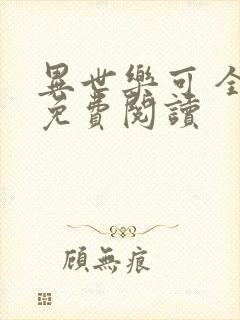 異世樂可 全
免費閱讀
顧無痕